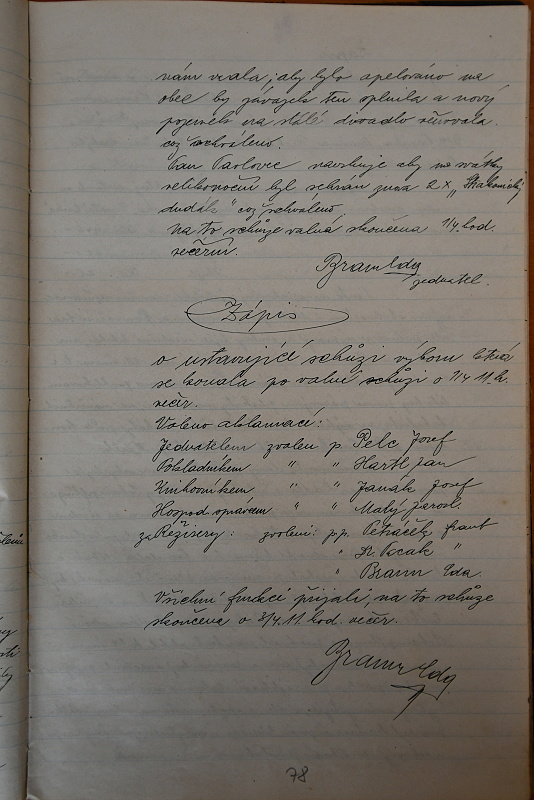 nám vzala, aby bylo apelováno na
obec by závazek ten splnila a nový
pozemek na stálé divadlo věnovala
což schváleno.
Pan Pavlovec navrhuje aby na svátky
velikonoční byl sehrán znova 2 x „Strakonický
dudák" což schváleno,
na to schůze valná skončena 11/4. hod.
večerní.
Braun Eda
jednatel.
Zápis
o ustavující schůzi výboru která
se konala po valné schůzi o 11/4 11. h.
večer.
Voleno aklamací:
Jednatelem zvolen p. Pelc Josef
Pokladníkem " " Hartl Jan
Knihovníkem " " Janák Josef
Hospod. správcem " " Malý Jarosl.
za Režisery: zvoleni: p.p. Petráček Frant
" St. Kocak "
" Braun Eda.
Všichni funkci přijali, na to schůze
skončena o 3/4 11. hod. večer.
Braun Eda
78